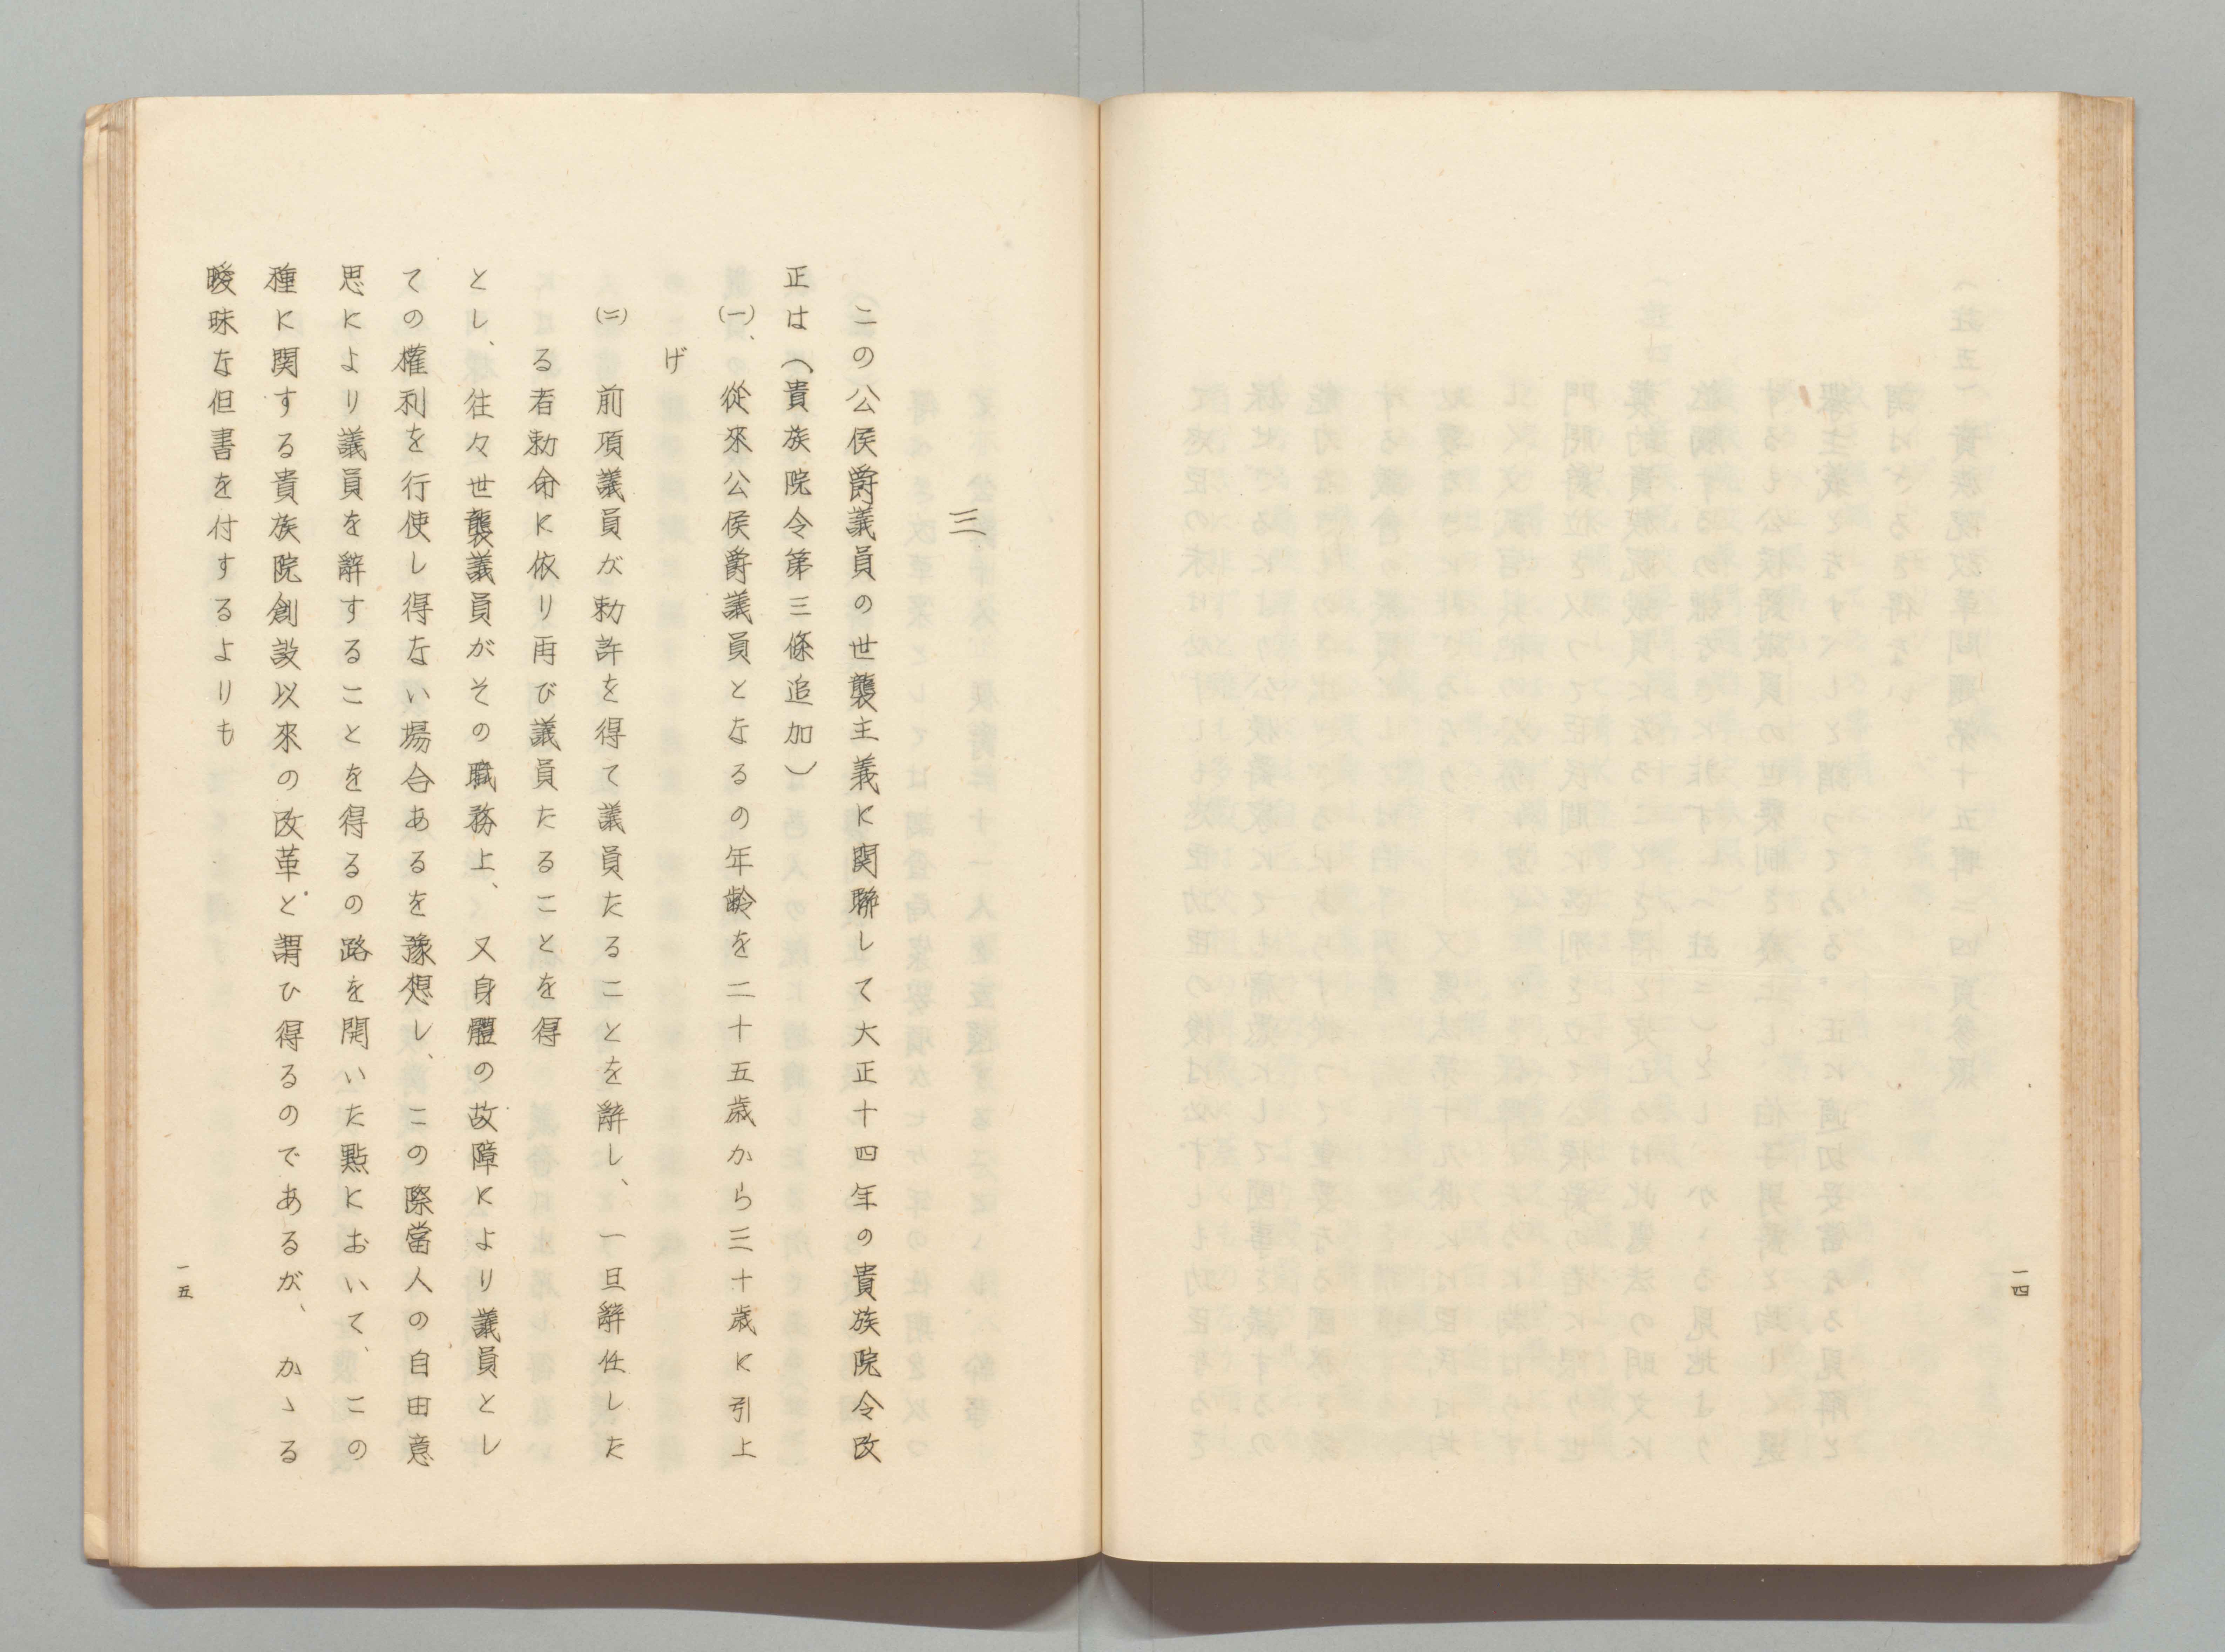 一四
三
この公侯爵議員の世襲主義に関聯して大正十四年の貴族院令改
正は（貴族院令第三條追加）
(一)、從來公侯爵議員となるの年齢を二十五歳から三十歳に引上
げ
(二)　前項議員が勅許を得て議員たることを辭し、一旦辭任した
る者勅命に依り再び議員たることを得
とし、往々世襲議員がその職務上、又身體の故障により議員とし
ての權利を行使し得ない場合あるを豫想し、この際當人の自由意
思により議員を辭することを得るの路を開いた點において、この
種に関する貴族院創設以來の改革と謂ひ得るのであるが、かゝる
曖昧な但書を付するよりも
一五